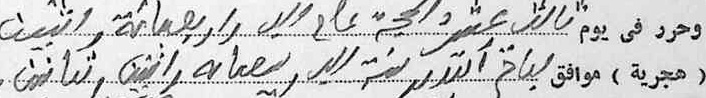 وحرر فى يوم ثالث عشر ذى الحجة عام الف واربعمائة واثنين
( هجرية ) موافق لسابع أكتوبر سنة الف وتسعمائة واثنين وثمانين